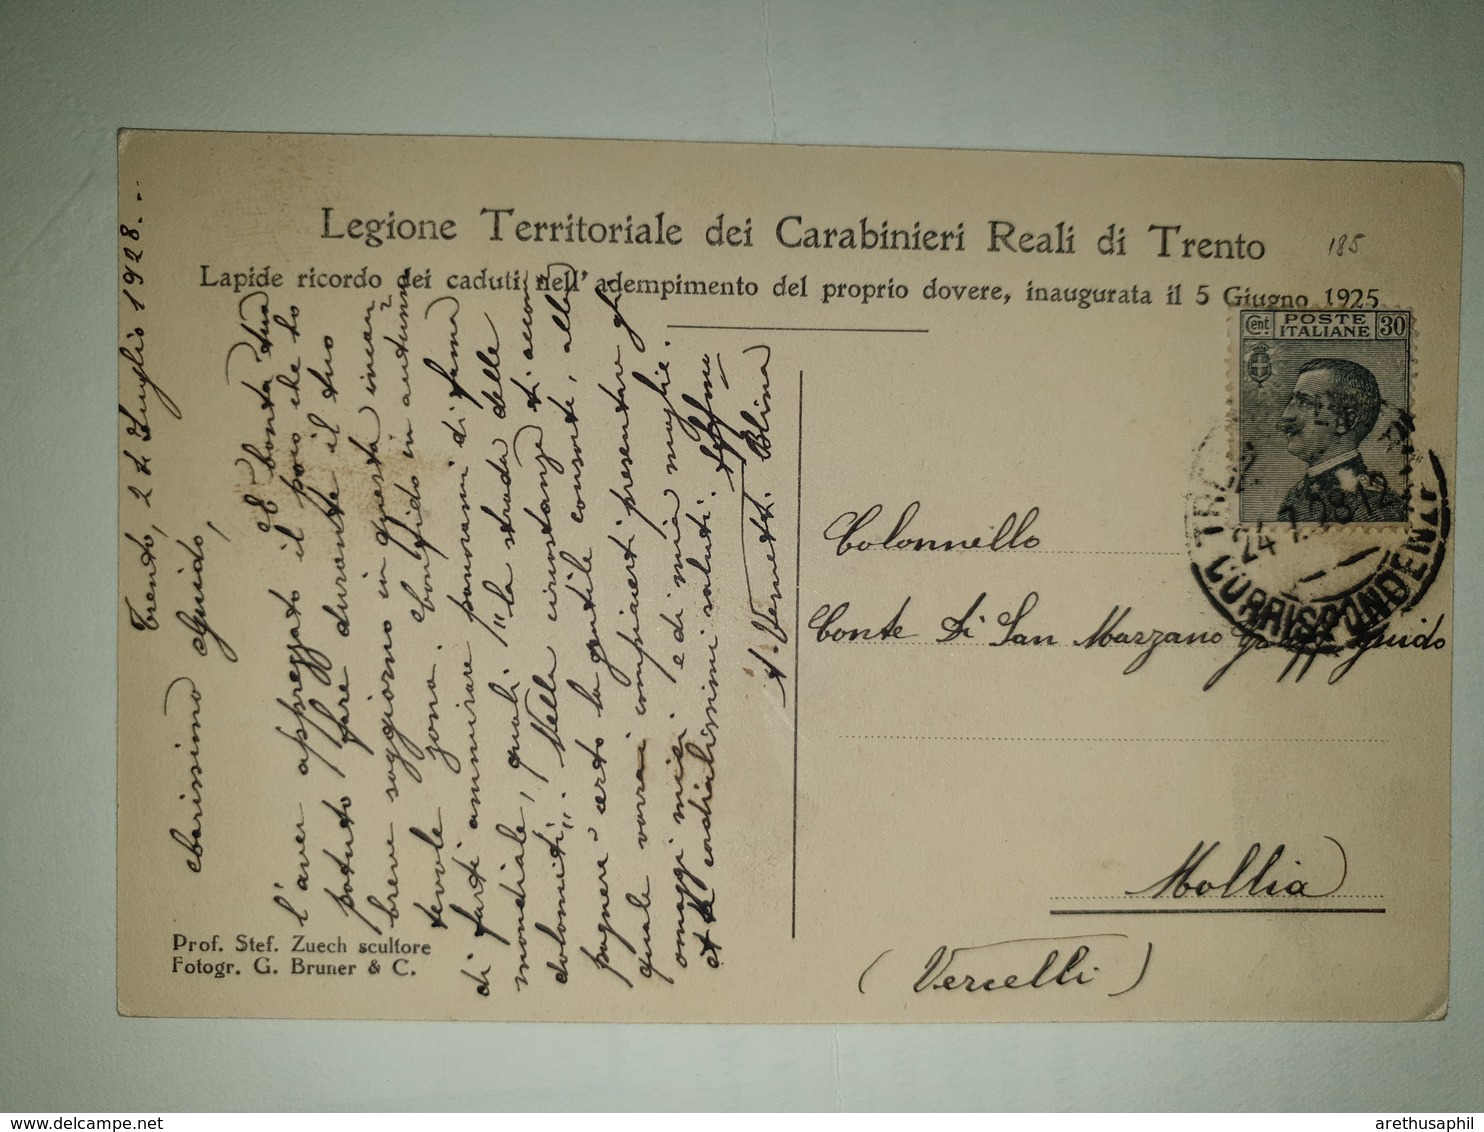 Legione Territoriale dei Carabinieri Reali di Trento
185
Lapide ricordo dei caduti nell' adempimento del proprio dovere, inaugurata il 5 Giugno 1925
Cent POSTE ITALIANE 30
TRENTO
24.7.28.12
CORRISPONDENZE
Trento, 24 Luglio 1928...
Carissimo Guido,
Ho bontà tua
l'aver apprezzato il poco che to
potuto fare durante il tuo
breve soggiorno in questa incan
tevole zona. Confido in autunno
di farti ammirare panorami di fama
mondiale, quali "la strada delle
dolomiti". Nella circostanza ti accom
pagnerà certo la gentile consorte, alla
quale vorrai compiacerti presentare gli
omaggi miei e di mia moglie.
cordialissimi saluti.
Colonnello
Conte di San Mazzano Guido
Mollia
(Vercelli)
Prof. Stef. Zuech scultore
Fotogr. G. Bruner & C.
delcampe.net
arethusaphil